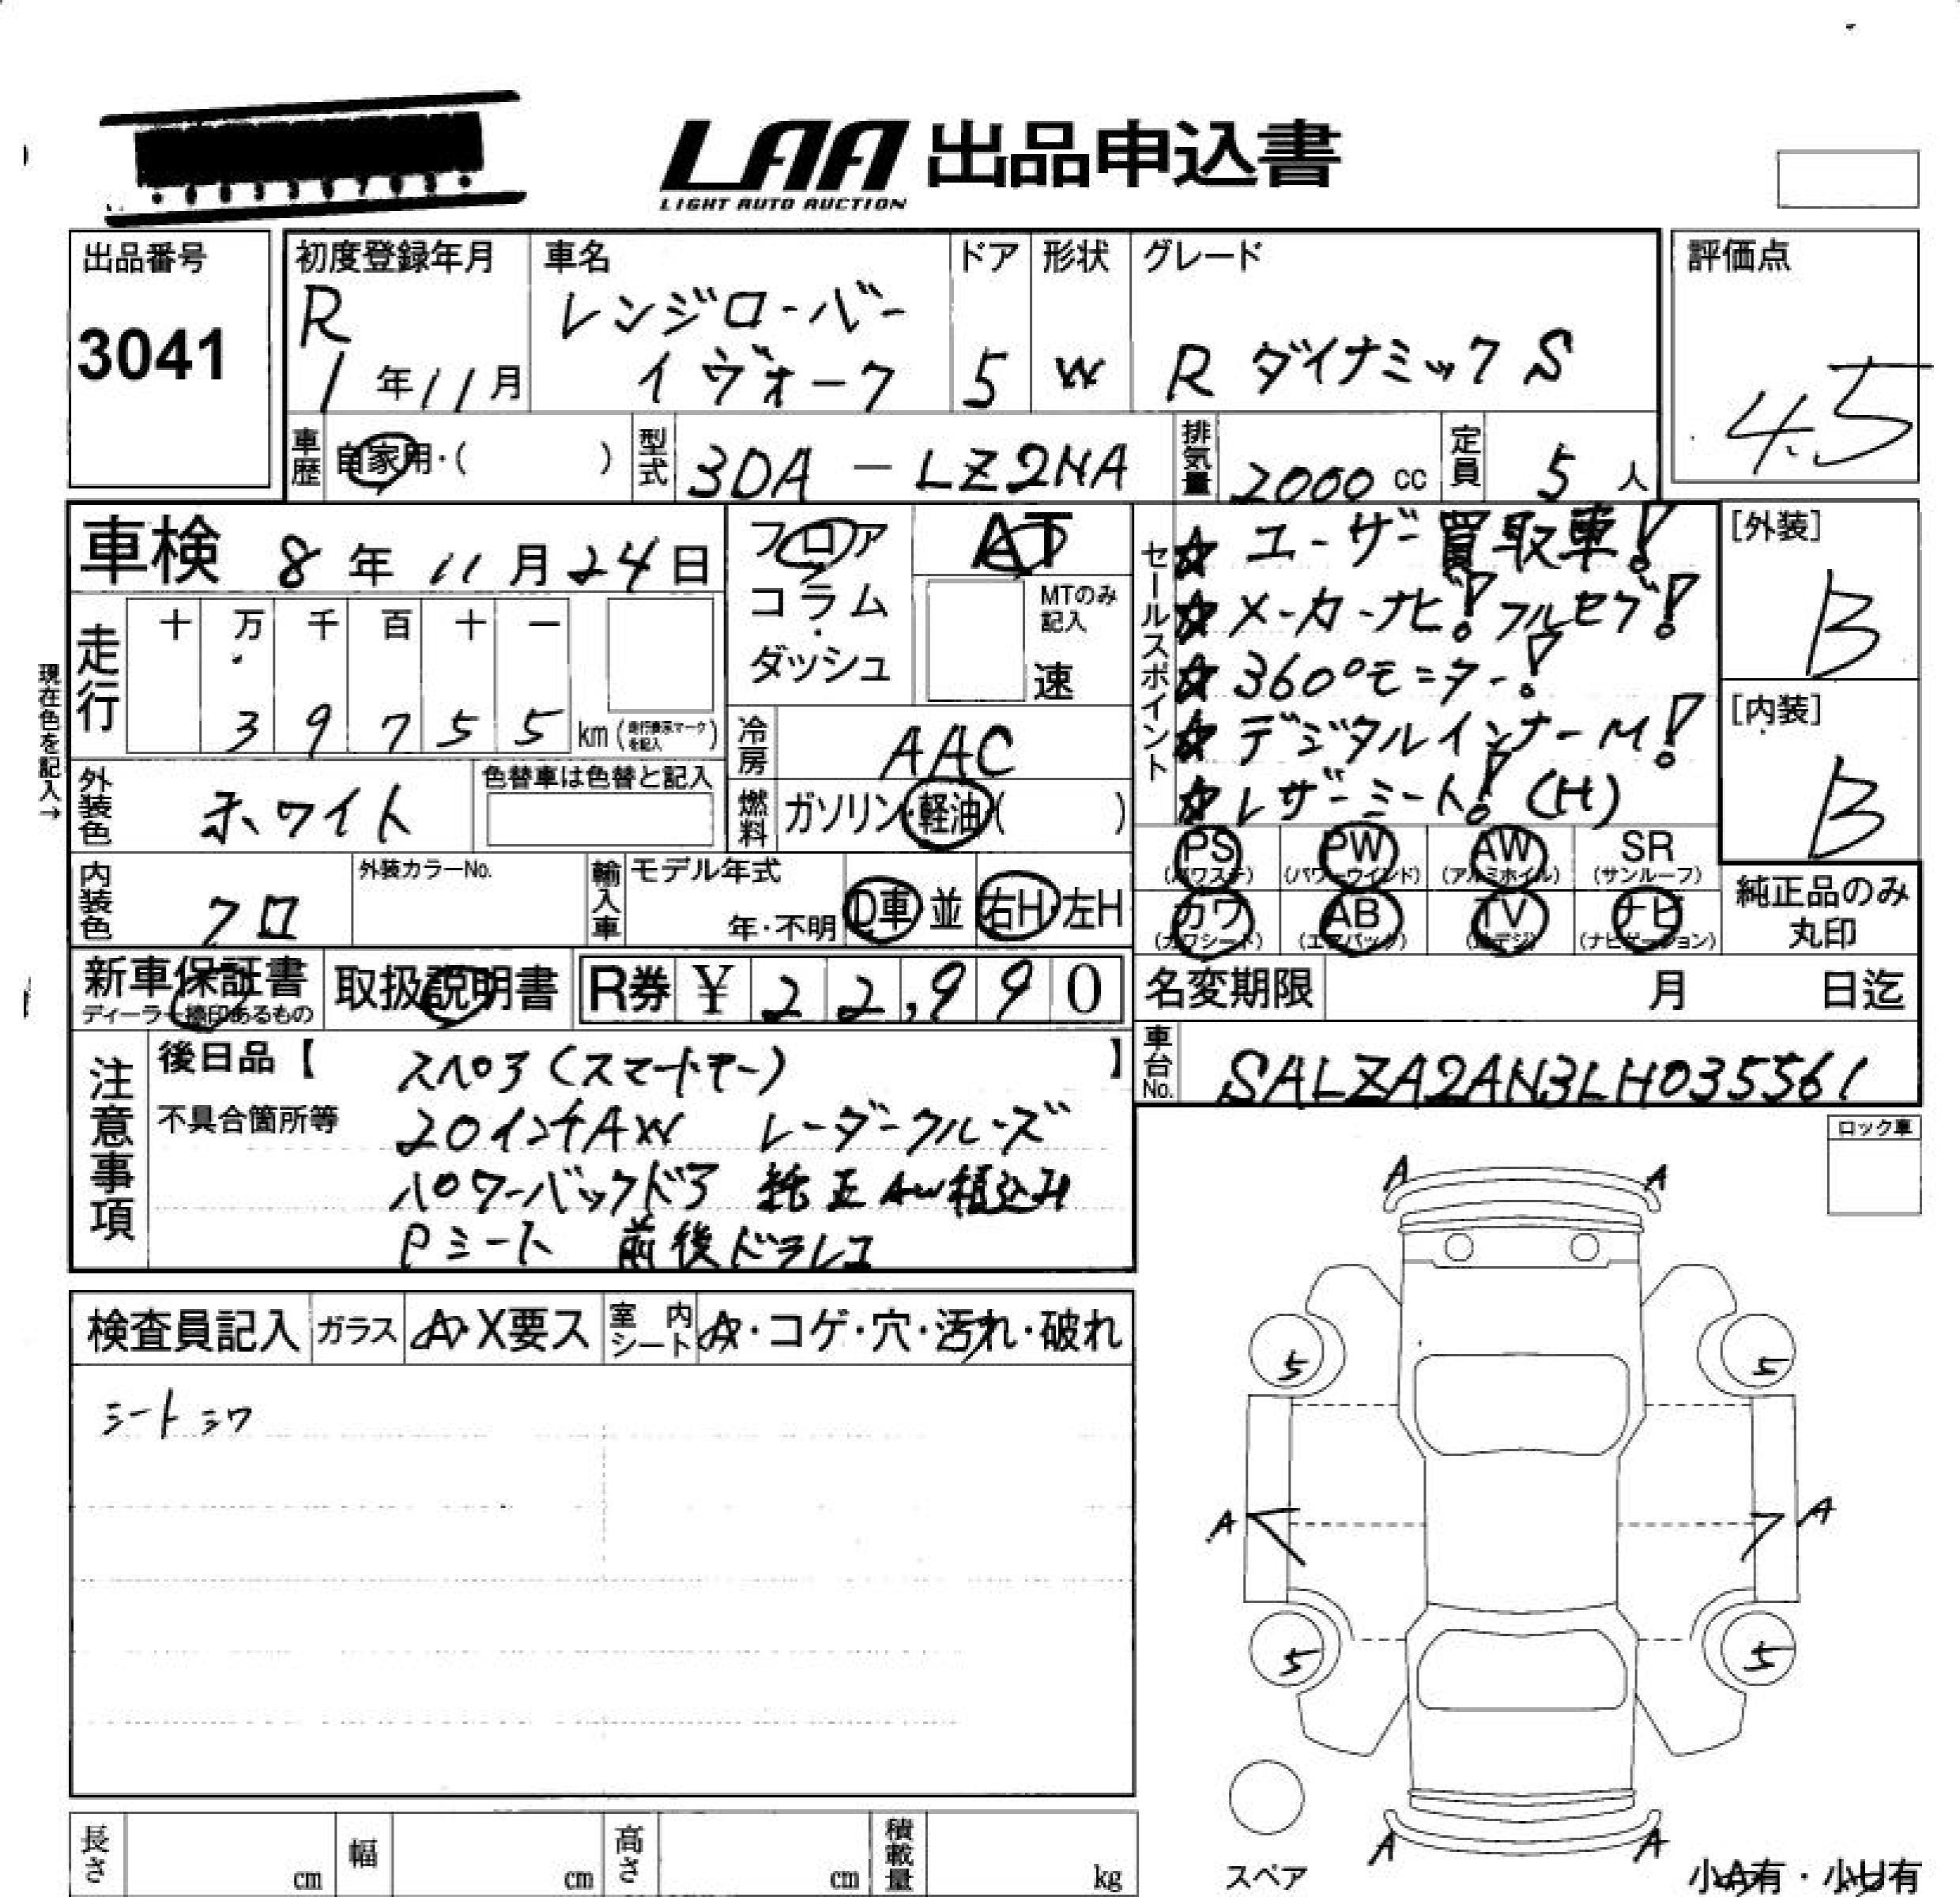 LAA 出品申込書
LIGHT AUTO AUCTION
出品番号
3041
初度登録年月
R
1年11月
車名
レンジローバー
イヴォーク
ドア
5
形状
W
グレード
R ダイナミックS
評価点
4.5
車歴
自家用・( )
型式
3DA-LZ2NA
排気量
2000 cc
定員
5 人
車検 8年11月24日
走行
十 万 千 百 十 一
3 9 7 5 5 km(走行表示マークを記入)
現在色を記入→
外装色
ホワイト
色替車は色替と記入
内装色
クロ
外装カラーNo.
フロア
コラム
・
ダッシュ
AT
MTのみ
記入
速
冷房
AAC
燃料
ガソリン・軽油( )
輸入車
モデル年式
年・不明
D車 並
右H・左H
セールスポイント
☆ユーザー買取車!
☆メーカーナビ!フルセグ!
☆360°モニター!
☆デジタルインナーM!
☆レザーシート!(H)
[外装]
B
[内装]
B
PS
(パワステ)
PW
(パワーウインド)
AW
(アルミホイル)
SR
(サンルーフ)
カワ
(カワシート)
AB
(エアバック)
TV
(地デジ)
ナビ
(ナビゲーション)
純正品のみ
丸印
新車保証書
ディーラー捺印あるもの
取扱説明書
R券 ¥22,990
名変期限 月 日迄
車台No.
SALZA2AN3LH035561
注意事項
後日品【 スペア(スマートキー) 】
不具合箇所等 20インチAW レーダークルーズ
パワーバックドア 純正AW積込み
Pシート 前後ドラレコ
検査員記入 ガラス A・X要ス 室内シート A・コゲ・穴・汚れ・破れ
シートシワ
ロック車
A A
5 5
A A
5 5
A A
スペア
小A有・小U有
長さ cm 幅 cm 高さ cm 積載量 kg